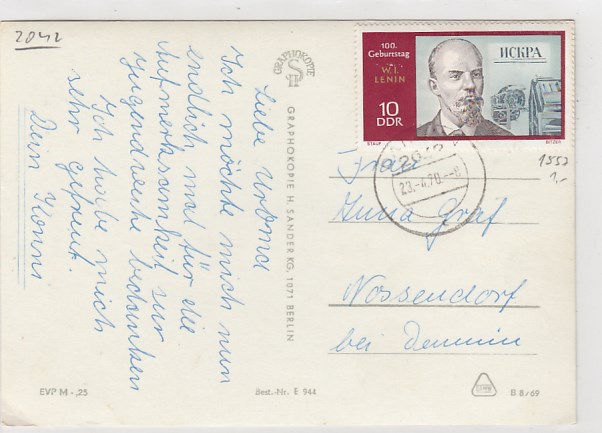 2042
Liebe Uroma
Ich möchte mich nun
endlich mal für die
Aufmerksamkeit zur
Jugendweihe bedanken
Ich habe mich
sehr gefreut.
Dein Konni
GRAPHOKOPIE
GRAPHOKOPIE H. SANDER KG, 1071 BERLIN
100.
Geburtstag
W. I.
LENIN
10
DDR
ИСКРА
2042
23.-4.70.--8
1553
1,-
Frau
Anna Gräf
Nossendorf
bei Demmin
EVP M -,25
Best.-Nr. E 944
B 8/69